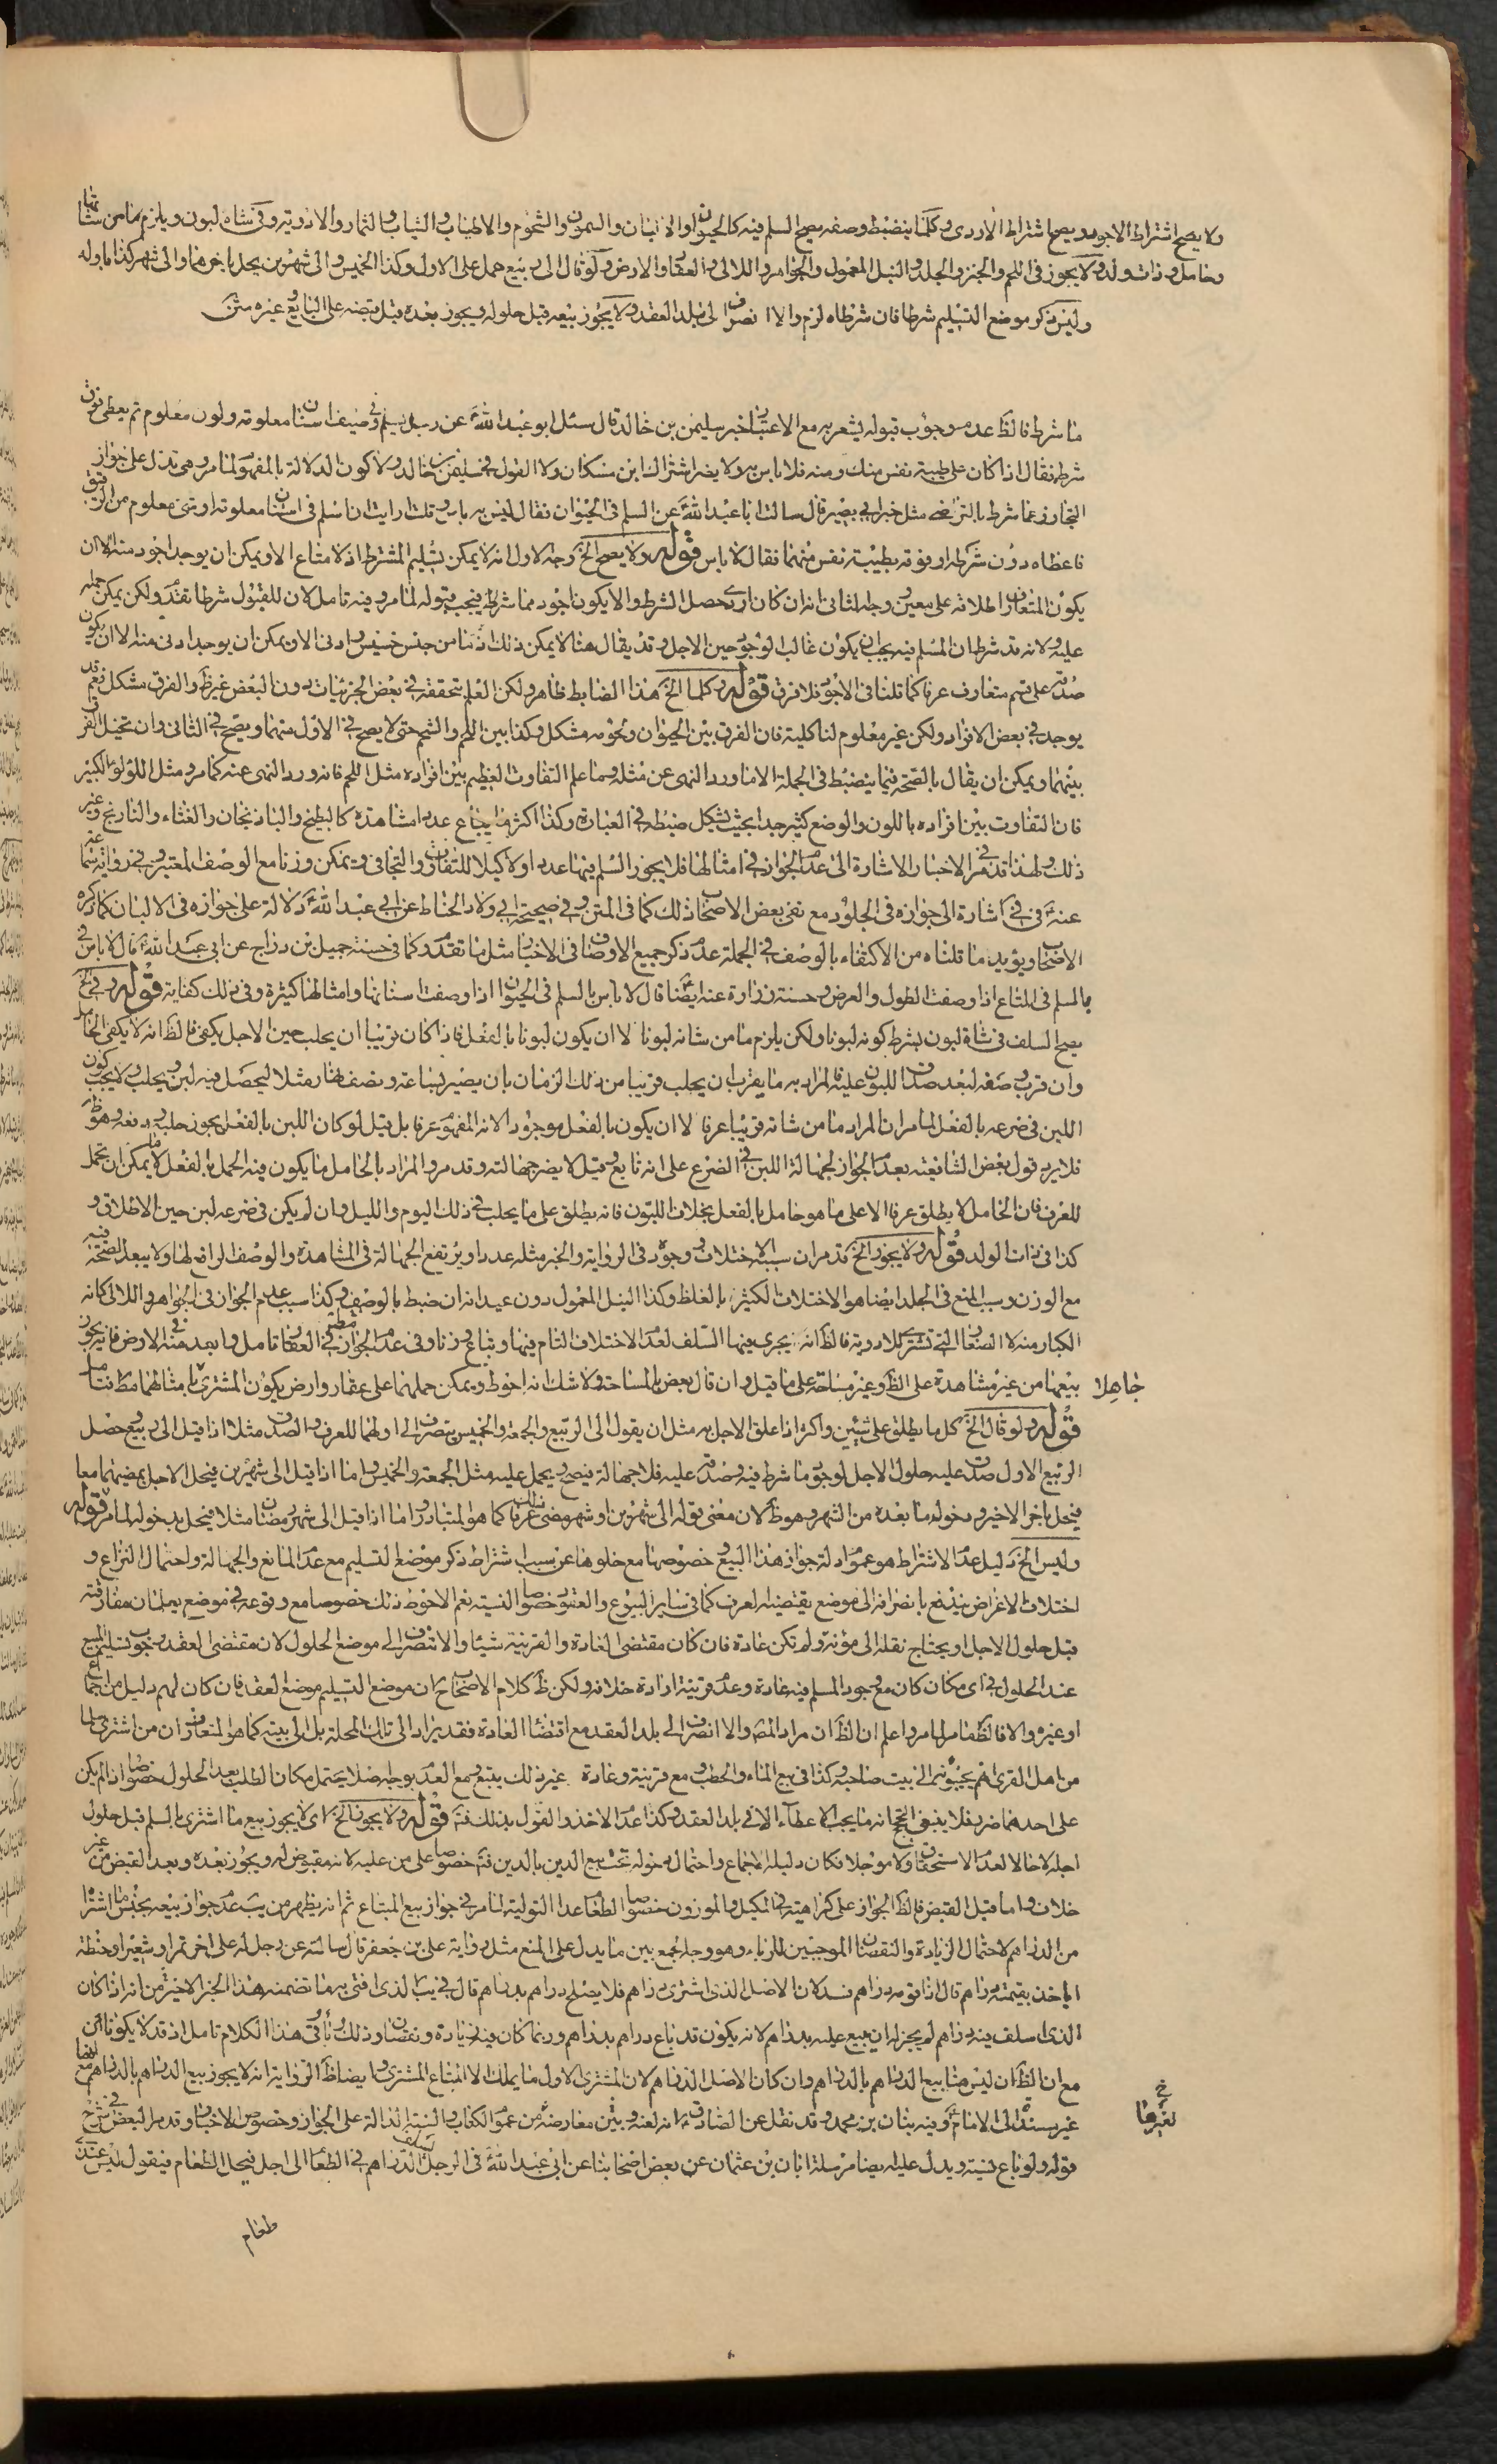 ولا يصح اشتراط الاجود ويصح اشتراط الاردى وكلما ينضبط وصفه يصح السلم فيه كالحيوان والالبان والسمون والشحوم والاطياب والثياب والثمار والادوية وفي شاة لبون ويلزم ما من شانها
وحامل وذات ولد ولا يجوز في اللحم والخبز والجلد والنبل المعمول والجواهر واللالي والعقار والارض ولو قال الى ربيع حمل على الاول وكذا الخميس والى شهرين يحل باخرهما والى شهر كذا باوله
وليس ذكر موضع التسليم شرطا فان شرطاه لزم والا انصرف الى بلد العقد ولا يجوز بيعه قبل حلوله ويجوز بعده قبل قبضه على البايع وغيره متن
ما شرط فالظ عدم وجوب قبوله يشعر به مع الاعتبار خبر سليمن بن خالد قال سئل ابو عبد الله عن رجل يسلم في وصيف اسنان معلومة ولون معلوم ثم يعطى فوق
شرطه فقال اذا كان على طيبة نفس منك ومنه فلا باس به ولا يضر اشتراك ابن مسكان ولا القول في سليمن بن خالد ولا كون الدلالة بالمفهوم لما مر وهي تدل على جواز
التجاوز عما شرط بالتراضي مثل خبر ابي بصير قال سالت ابا عبد الله عن السلم في الحيوان فقال ليس به باس قلت ارايت ان اسلم في اسنان معلومة او شيء معلوم من الرقيق
فاعطاه دون شرطه او فوقه بطيبة نفس منهما فقال لا باس قوله ولا يصح الخ وجه الاول انه لا يمكن تسليم المشترط اذ لا متاع الا ويمكن ان يوجد اجود منه الا ان
يكون المتعارف اطلاقه على معين وجه الثاني انه ان كان اردى حصل الشرط والا يكون اجود مما شرط فيجب قبوله لما مر وفيه تامل لان للقبول شرطا تقدم ولكن يمكن حمله
عليه ولانه قد شرط ان المسلم فيه يجب ان يكون غالب الوجود حين الاجل وقد يقال هنا لا يمكن ذلك اذ ما من جنس خسيس وادنى الا ويمكن ان يوجد ادنى منه الا ان يكون
صدقه على قسم متعارف عرفا كما قلنا في الاجود فلا فرق قوله وكلما الخ هذا الضابط ظاهر ولكن العلم بتحققه في بعض الجزئيات دون البعض غير ظ والفرق مشكل نعم قد
يوجد في بعض الافراد ولكن غير معلوم لنا كلية فان الفرق بين الحيوان ولحومه مشكل وكذا بين اللحم والشحم حتى لا يصح في الاول منهما ويصح في الثاني وان تخيل الفرق
بينهما ويمكن ان يقال بالصحة فيما ينضبط في الجملة الا ما ورد النهى عن مثله وما علم التفاوت العظيم بين افراده مثل اللحم فانه ورد النهى عنه كما مر ومثل اللؤلؤ الكبير
فان التفاوت بين افراده باللون والوضع كثير جدا بحيث يشكل ضبطه في العبارة وكذا اكثر ما يباع عددا مشاهدة كالبطيخ والباذنجان والقثاء والنارنج وغير
ذلك ولهذا قد مر في الاخبار الاشارة الى عدم الجواز في امثالها فلا يجوز السلم فيها عددا ولا كيلا للتفاوت والتجافي ويمكن وزنا مع الوصف المعتبر وفي رواية سماعة
عنه في اشارة الى جوازه في الجلود مع نفي بعض الاصحاب ذلك كما في المتن وفي صحيحة ابي ولاد الحناط عن ابي عبد الله دلالة على جوازه في الالبان كما ذكره
الاصحاب ويؤيد ما قلناه من الاكتفاء بالوصف في الجملة عدم ذكر جميع الاوصاف في الاخبار مثل ما تقدم وكما في حسنة جميل بن دراج عن ابي عبد الله قال لا باس
بالسلم في المتاع اذا وصفت الطول والعرض وحسنة زرارة عنه ايضا قال لا باس بالسلم في الحيوان اذا وصفت اسنانها وامثالها كثيرة وفي ذلك كفاية قوله وفي الخ
يصح السلف في شاة لبون بشرط كونه لبونا ولكن يلزم ما من شانه لبونا لا ان يكون لبونا بالفعل فاذا كان قريبا ان يحلب حين الاجل يكفي فالظ انه لا يكفي الحامل
وان قرب وضعه لبعد صدق اللبون عليه فالمراد به ما يقرب ان يحلب قريبا من ذلك الزمان بان يصير بساعة ونصف نهار مثلا ليحصل فيه لبن ويحلب ولا يجب كون
اللبن في ضرعه بالفعل لما مر ان المراد ما من شانه قريبا عرفا لا ان يكون بالفعل موجود الانه المفهوم عرفا بل قيل لو كان اللبن بالفعل يجوز حلبه ودفعه وهو ظ
فلا يرد قول بعض الشافعية بعدم الجواز لجهالة اللبن في الضرع على انه تابع وقيل لا يضر جهالته وقد مر والمراد بالحامل ما يكون فيه الحمل بالفعل لا يمكن ان يحمل
للعرف فان الحامل لا يطلق عرفا الا على ما هو حامل بالفعل بخلاف اللبون فانه يطلق على ما يحلب في ذلك اليوم والليل وان لم يكن في ضرعه لبن حين الاطلاق و
كذا في ذات الولد قوله ولا يجوز الخ قد مر ان سببه الاختلاف وجوده في الرواية والخبز مثله عددا ويرتفع الجهالة في المشاهدة والوصف الرافع لها ولا يبعد الصحة فيه
مع الوزن وسبب المنع في الجلد ايضا هو الاختلاف الكثير بالغلظ وكذا النبل المعمول دون عيدانه ان ضبط بالوصف وكذا سبب عدم الجواز في الجواهر واللالي كانه
الكبار منه لا الصغار التي تشترى للادوية فالظ انه يجرى فيها السلف لعدم الاختلاف التام فيها وتباع وزنا وفي عدم الجواز في العقار تامل وابعد منه في الارض فانه يجوز
بيعها من غير مشاهدة على الظ وغير مساحة على ما قيل وان قال بعض بالمساحة ولا شك انه احوط ويمكن حملهما على عقار وارض يكون المشترى بامثالهما جاهلا
قوله ولو قال الخ كل ما يطلق على شيئين واكثر اذا علق الاجل به مثل ان يقول الى الربيع والجمعة والخميس ينصرف الى اولهما للعرف والصدق مثلا اذا قيل الى ربيع حصل
الربيع الاول صدق عليه حلول الاجل لوجود ما شرط فيه وصدقه عليه فلا جهالة فيصح ويحمل عليه مثل الجمعة والخميس واما اذا قيل الى شهرين فيحل الاجل بمضيهما معا
فيحل باخر الاخير ودخول ما بعده من الشهر وهو ظ لان معنى قوله الى شهرين او شهر مضى ذلك عرفا كما هو المتبادر واما اذا قيل الى شهر رمضان مثلا فيحل بدخوله لما مر قوله
وليس الخ دليل عدم الاشتراط هو عموم ادلة جواز هذا البيع خصوصا مع خلوها عن سبب اشتراط ذكر موضع التسليم مع عدم المانع والجهالة واحتمال النزاع و
اختلاف الاغراض يندفع بانصرافه الى موضع يقتضيه العرف كما في ساير البيوع والعقود خصوصا النسية نعم الاحوط ذلك خصوصا مع وقوعه في موضع يعلمان مفارقته
قبل حلول الاجل او يحتاج نقله الى مؤنة ولم تكن عادة فان كان مقتضى العادة والقرينة شيئا والا انصرف الى موضع الحلول لان مقتضى العقد وجوب تسليم المبيع
عند الحلول في اى مكان كان مع وجود المسلم فيه عادة وعدم قرينة ارادة خلافه ولكن ظ كلام الاصحاب ان موضع التسليم موضع العقد فان كان لهم دليل من اجماع
او غيره والا فالظ ما مر لما مر واعلم ان الظ ان مراد المصنف والا انصرف الى بلد العقد مع اقتضاء العادة فقد يراد الى تلك المحلة بل الى بيته كما هو المتعارف ان من اشترى
من اهل القرى انهم يجيبونه الى بيت صاحبه وكذا في بيع الماء والحطب ومع قرينة وعادة غير ذلك يتبع ومع العدم بوجه اصلا يحتمل مكان الطلب بعد الحلول خصوصا اذا لم يكن
على احدهما ضرر فلا ينبغي الحكم انه ما يجب الاعطاء الا في بلد العقد وكذا عدم الاخذ والقول بذلك فتـ قوله ولا يجوز الخ اى لا يجوز بيع ما اشترى بالسلم قبل حلول
اجله لا حالا لعدم الاستحقاق ولا مؤجلا فكان دليله الاجماع واحتمال دخوله تحت بيع الدين بالدين فتـ خصوصا على من عليه لانه مقبوض له ويجوز بعده وبعد القبض من غير
خلاف واما قبل القبض فالظ الجواز على كراهية في المكيل والموزون خصوصا الطعام عدا التولية لما مر في جواز بيع المبتاع ثم انه يظهر من يب عدم جواز بيعه بجنس ما اشتراه
من الدراهم لاحتمال الزيادة والنقصان الموجبين للرباء وهو وجه الجمع بين ما يدل على المنع مثل رواية على بن جعفر قال سالته عن رجل له على اخر تمر او شعير او حنطة
اياخذ بقيمته دراهم قال اذا قومه دراهم فسد لان الاصل الذى اشترى دراهم فلا يصلح دراهم بدراهم قال في يب الذى افتى به ما تضمنه هذا الخبر الاخير من انه اذا كان
الذى اسلف فيه دراهم لم يجز له ان يبيع عليه بدراهم لانه يكون قد باع دراهم بدراهم وربما كان فيه زيادة ونقصان وذلك ربا وفي هذا الكلام تامل اذ قد لا يكون
مع ان الظ ان ليس هنا بيع الدراهم بالدراهم وان كان الاصل الدراهم لان المشترى الاول ما يملك الا المتاع المشترى وايضا ظ الرواية انه لا يجوز بيع الدراهم بالدراهم مع
غير مسند الى الامام وفيه بنان بن محمد وقد نقل عن الصادق انه لعنه وبين معارضة من عموم الكتاب والسنة الدالة على الجواز وخصوص الاخبار وقد مر البعض في شرح
قوله ولو باع نسية ويدل عليه ايضا مرسلة ابان بن عثمان عن بعض اصحابنا عن ابي عبد الله في الرجل يسلف الدراهم في الطعام الى اجل فيحل الطعام فيقول ليس عندى
طعام